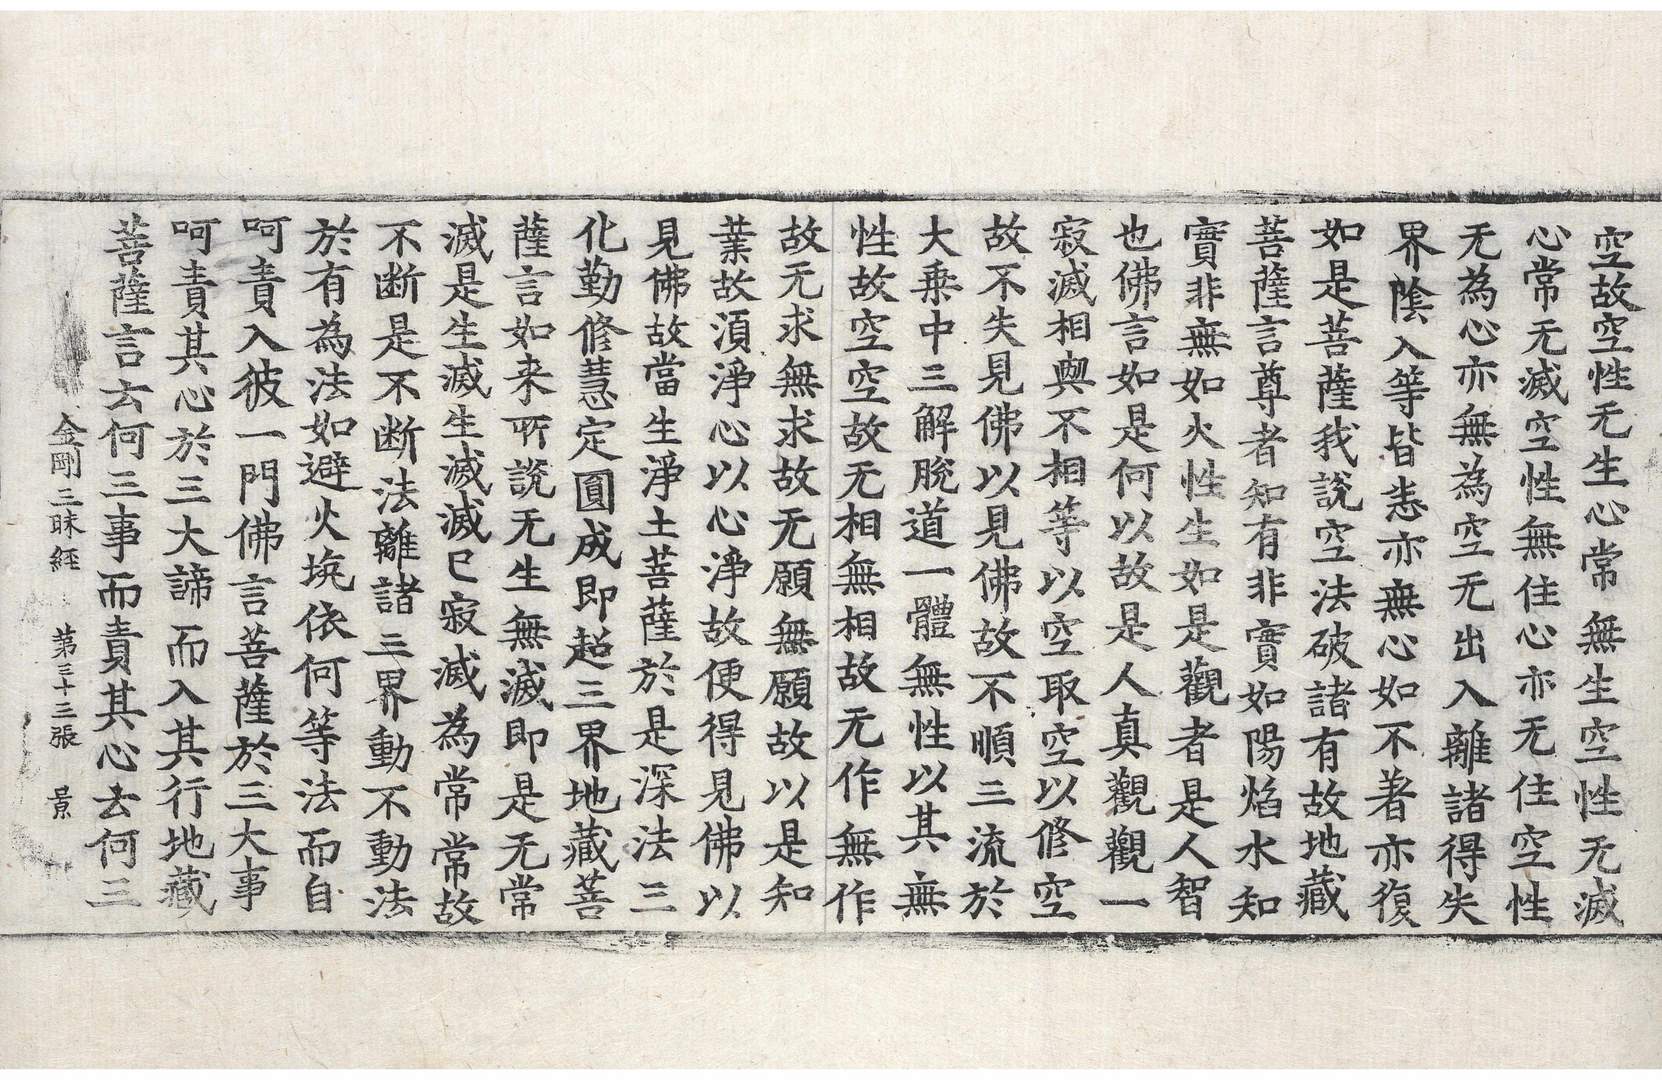 空故空性无生心常無生空性无滅
心常无滅空性無住心亦无住空性
无為心亦無為空无出入離諸得失
界陰入等皆悉亦無心如不著亦復
如是菩薩我說空法破諸有故地藏
菩薩言尊者知有非實如陽焰水知
實非無如火性生如是觀者是人智
也佛言如是何以故是人真觀觀一
寂滅相與不相等以空取空以修空
故不失見佛以見佛故不順三流於
大乗中三解脫道一體無性以其無
性故空空故无相無相故无作無作
故无求無求故无願無願故以是知
業故湏淨心以心淨故便得見佛以
見佛故當生淨土菩薩於是深法三
化勤修慧定圓成即超三界地藏菩
薩言如来所說无生無滅即是无常
滅是生滅生滅滅已寂滅為常常故
不断是不断法離諸三界動不動法
於有為法如避火坑依何等法而自
呵責入彼一門佛言菩薩於三大事
呵責其心於三大諦而入其行地藏
菩薩言云何三事而責其心云何三
金剛三昧經 第三十三張 景